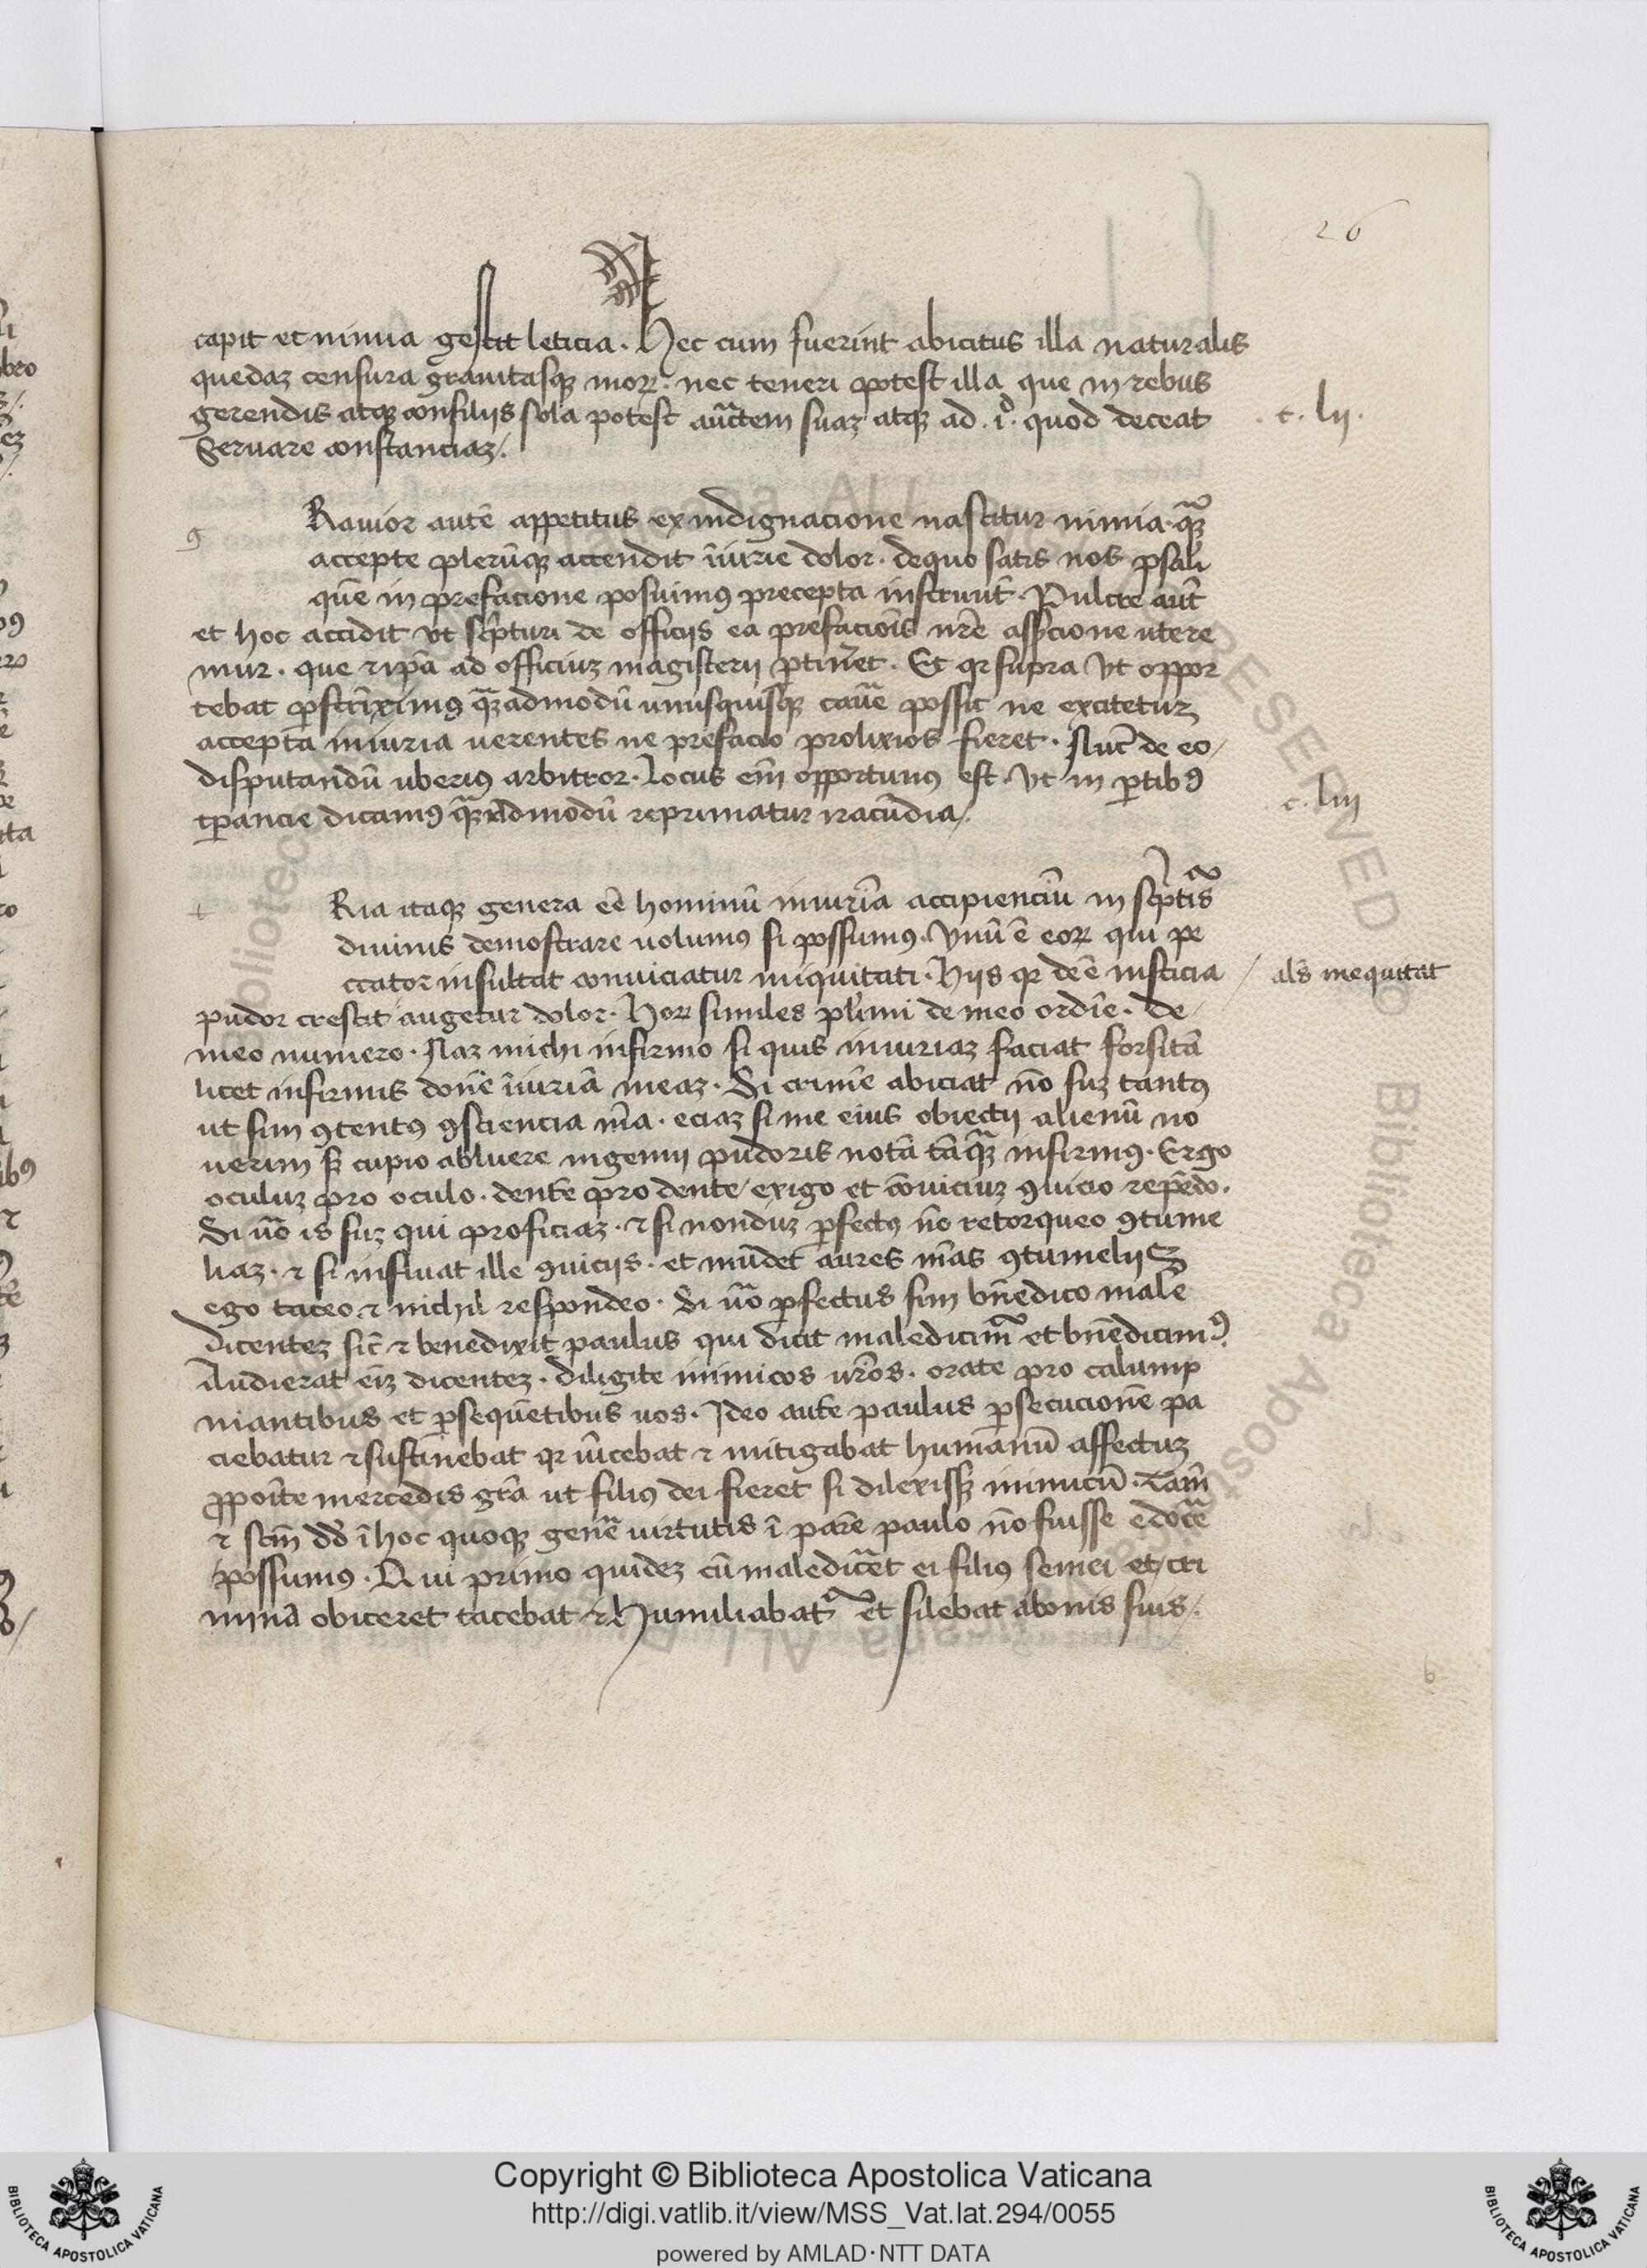 26
capit et nimia gestit leticia. Hec cum fuerint abicitus illa naturalis
quedaz censura grauitasqꝫ moꝝ. nec teneri potest illa que in rebus
gerendis atqꝫ consiliis sola potest auc̄tem suaz atqꝫ ad .i.d quod deceat
Seruare constanciaz/.
c. lij.
g
Rauior autē appetitus ex indignacione nascitur nimia. qꝫ
accepte plerūqꝫ accendit īiurie dolor. dequo satis nos psal̄i
quē in prefacione posuimꝰ precepta instruūt. Pulcre aūt
et hoc accidit vt sc̄pturi de officijs ea prefaciōis nr̄e assc̄ione utere
mur. que ⁊ ip̄a ad officiuz magisterij ꝑtin̄et. Et qr supra vt oppor
tebat ꝑstrīximꝰ qꝫadmodū unusquisqꝫ cauē possit ne excitetur
accepta iniuria uerentes ne prefacio prolixios fieret. Nūc de eo/
disputandū uberiꝰ arbitror. Locus em̄ opportunꝰ est. vt in ꝑtibꝰ
tꝑancie dicamꝰ qꝫadmodū reprimatur iracūdia/.
c. liij
t
Ria itaqꝫ genera eē hominū iniuriā accipienciū in sc̄ptis
diuinis demostrare uolumꝰ si possumꝰ. Vnū ē eoꝝ qui pe
ccator insultat conuiciatur iniquitati. Hijs qr deē iusticia /
als inequitat
pudor crescit augetur dolor. Hoꝝ similes pl̄imi de meo ordīe. de/
meo numero. Naz michi infirmo si quis iniuriaz faciat forsitā
licet infirmis donē īiuriā meaz. Si crimē abiciat nō suz tantꝰ
ut sim ꝯtentꝰ ꝯsciencia m̄a. eciaz si me eius obiectij alienū no
uerim sꝫ cupio abluere ingenuj pudoris notā tāqꝫ infirmꝰ. Ergo
oculuz pro oculo. dentē pro dente/ exigo et cōuiciuz ꝯuicio repēdo.
Si uo is suz qui proficiaz. ⁊ si nonduz ꝑfectꝰ nō retorqueo ꝯtume
liaz. ⁊ si influat ille ꝯuicijs. et mūdet aures m̄as ꝯtumelijs
ego taceo ⁊ nichil respondeo. Si uo ꝑfectus sim bn̄edico male
dicentez sic̄ ⁊ benedixit paulus qui dicit maledicim̄ et bn̄edicimꝰ.
Audierat eīz dicentez. diligite inimicos ur̄os. orate pro calump
niantibus et ꝑsequētibus uos. Ideo autē paulus ꝑsecucionē pa
ciebatur ⁊ sustinebat qr uīcebat ⁊ mitigabat humanū affectuz
ꝓpoīte mercedis grā ut filiꝰ dei fieret si dilexissꝫ inimicū. Tam̄
⁊ scm̄ dd̄ ī hoc quoqꝫ genē uirtutis ī parē paulo nō fuisse edocē
possumꝰ. Qui primo quidez cū maledic̄et ei filiꝰ semei et cri
mina obiceret tacebat ⁊ humiliabat᷑ et silebat abonis suis/.
b
Copyright © Biblioteca Apostolica Vaticana
http://digi.vatlib.it/view/MSS_Vat.lat.294/0055
powered by AMLAD·NTT DATA